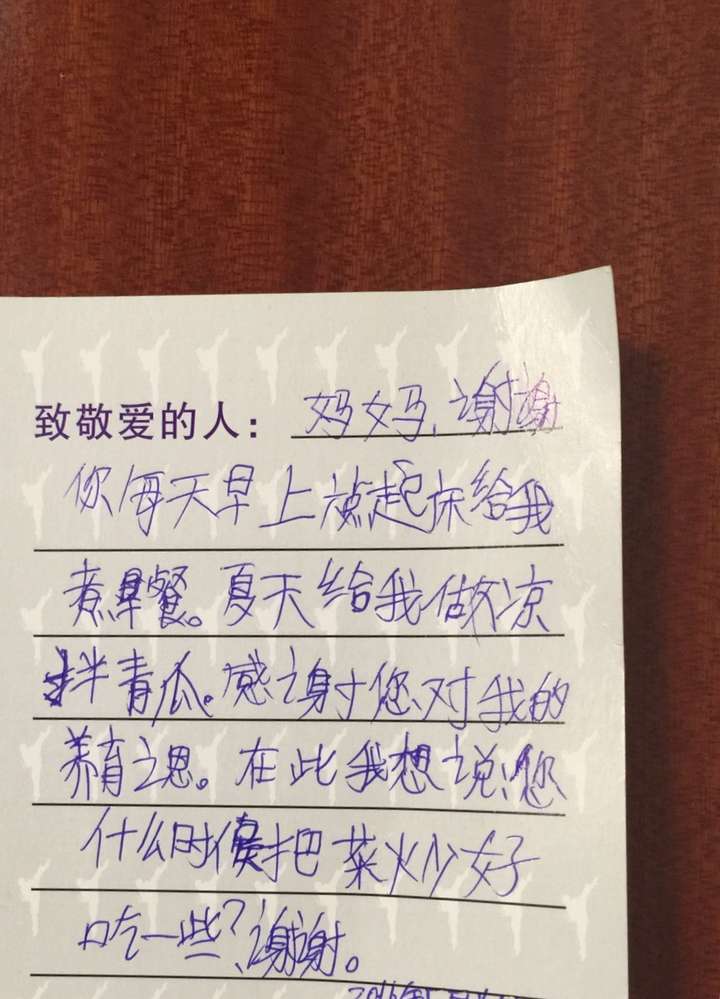 致敬爱的人：妈妈，谢谢
你每天早上起床给我
煮早餐。夏天给我做凉
拌青瓜。感谢您对我的
养育之恩。在此我想说：您
什么时候把菜炒好
吃一些？谢谢。